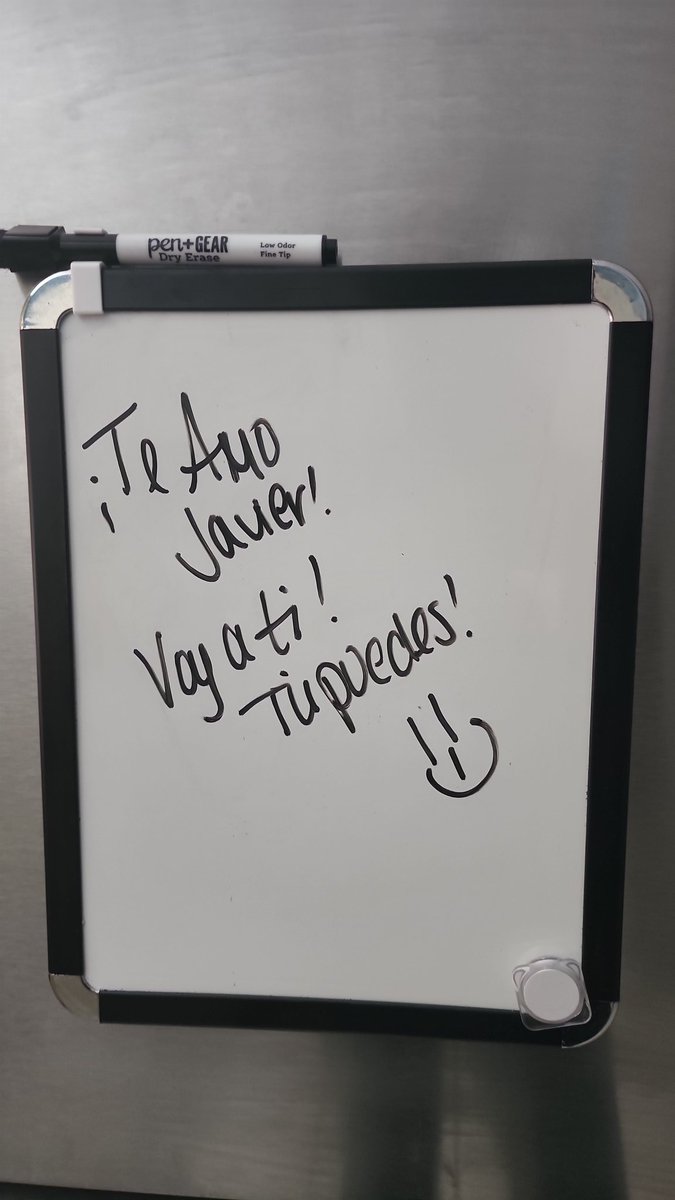 pen+GEAR
Dry Erase
Low Odor
Fine Tip
¡Te Amo
Javier!
Voy a ti!
Tú puedes!